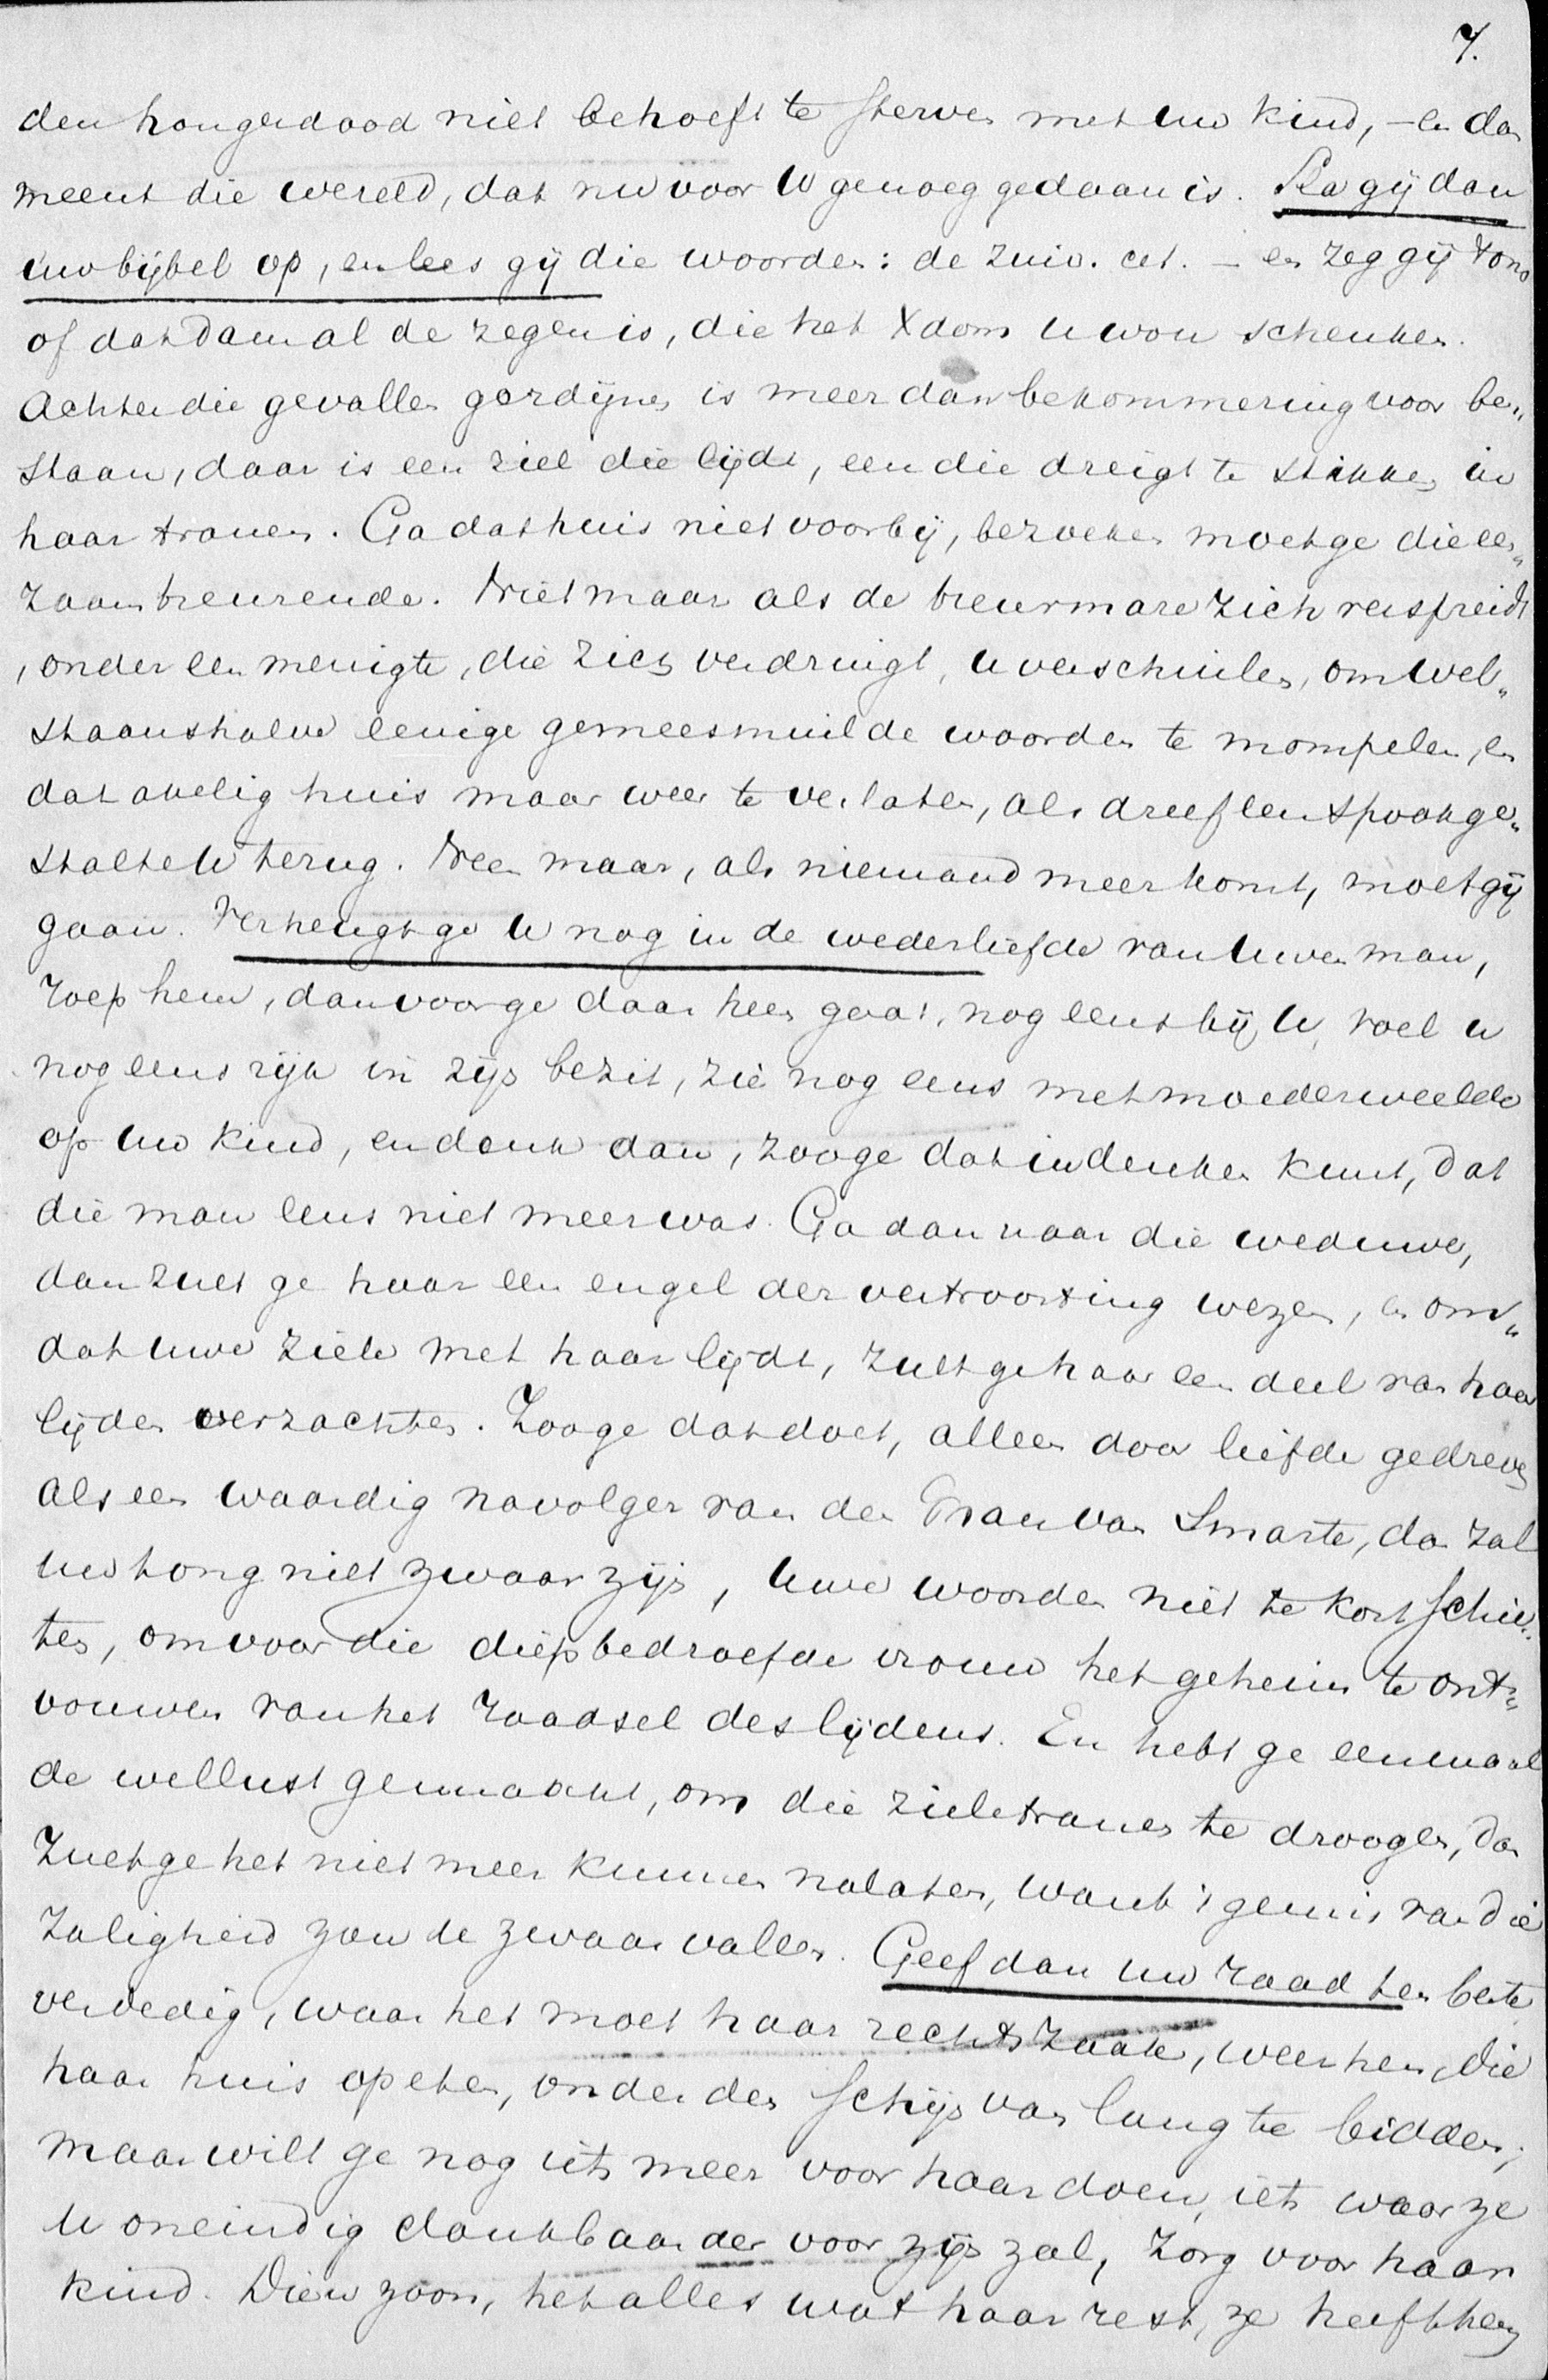 7.
den hongerdood niet behoeft te sterven met uw kind, – en dan
meent die wereld, dat nu voor U genoeg gedaan is. Sla gij dan
uw bijbel op, en lees gij die woorden: de zuiv. cet. – en zeg gij 't ons
of dat dan al de zegen is, die het Xdom u wou schenken.
Achter die gevallen gordijnen is meer dan bekommering voor be„
staan, daar is een ziel die lijdt, een die dreigt te stikken in
haar tranen. Ga dat huis niet voorbij, bezoeken moet ge die een„
zaam treurende. Niet maar als de treurmare zich verspreidt
, onder een menigte, die zich verdringt, u verschuilen, om wel„
staanshalve eenige gemeesmuilde woorden te mompelen, en
dat akelig huis maar weer te verlaten, als dreef een spookge„
stalte U terug. Neen maar, als niemand meer komt, moet gij
gaan. Verheugt ge U nog in de wederliefde van Uwen man,
roep hem, dan voor ge daar heen gaat, nog eens bij U, voel u
nog eens rijk in zijn bezit, zie nog eens met moederweelde
op Uw kind, en denk dan, zoo ge dat indenken kunt, dat
die man eens niet meer was. Ga dan naar die weduwe,
dan zult ge haar een engel der vertroosting wezen, en om„
dat uwe ziele met haar lijdt, zult ge haar een deel van haar
lijden verzachten. Zoo ge dat doet, alleen door liefde gedreven
als een waardig navolger van den Man van Smarte, dan zal
uw tong niet zwaar zijn, Uwe woorden niet te kort schie„
ten, om voor die diep bedroefde vrouw het geheim te ont„
vouwen van het raadsel des lijdens. En hebt ge eenmaal
de wellust gesmaakt, om die zieletranen te droogen, dan
zult ge het niet meer kunnen nalaten, want 't gemis van die
zaligheid zou te zwaar vallen. Geef dan uw raad ten beste
verdedig, waar het moet haar rechtszaak, weer hen, die
haar huis opeten, onder den schijn van lang te bidden;
maar wilt ge nog iets meer voor haar doen, iets waar ze
U oneindig dankbaarder voor zijn zal, Zorg voor haar
kind. Dien zoon, het alles wat haar rest, ze heeft hem